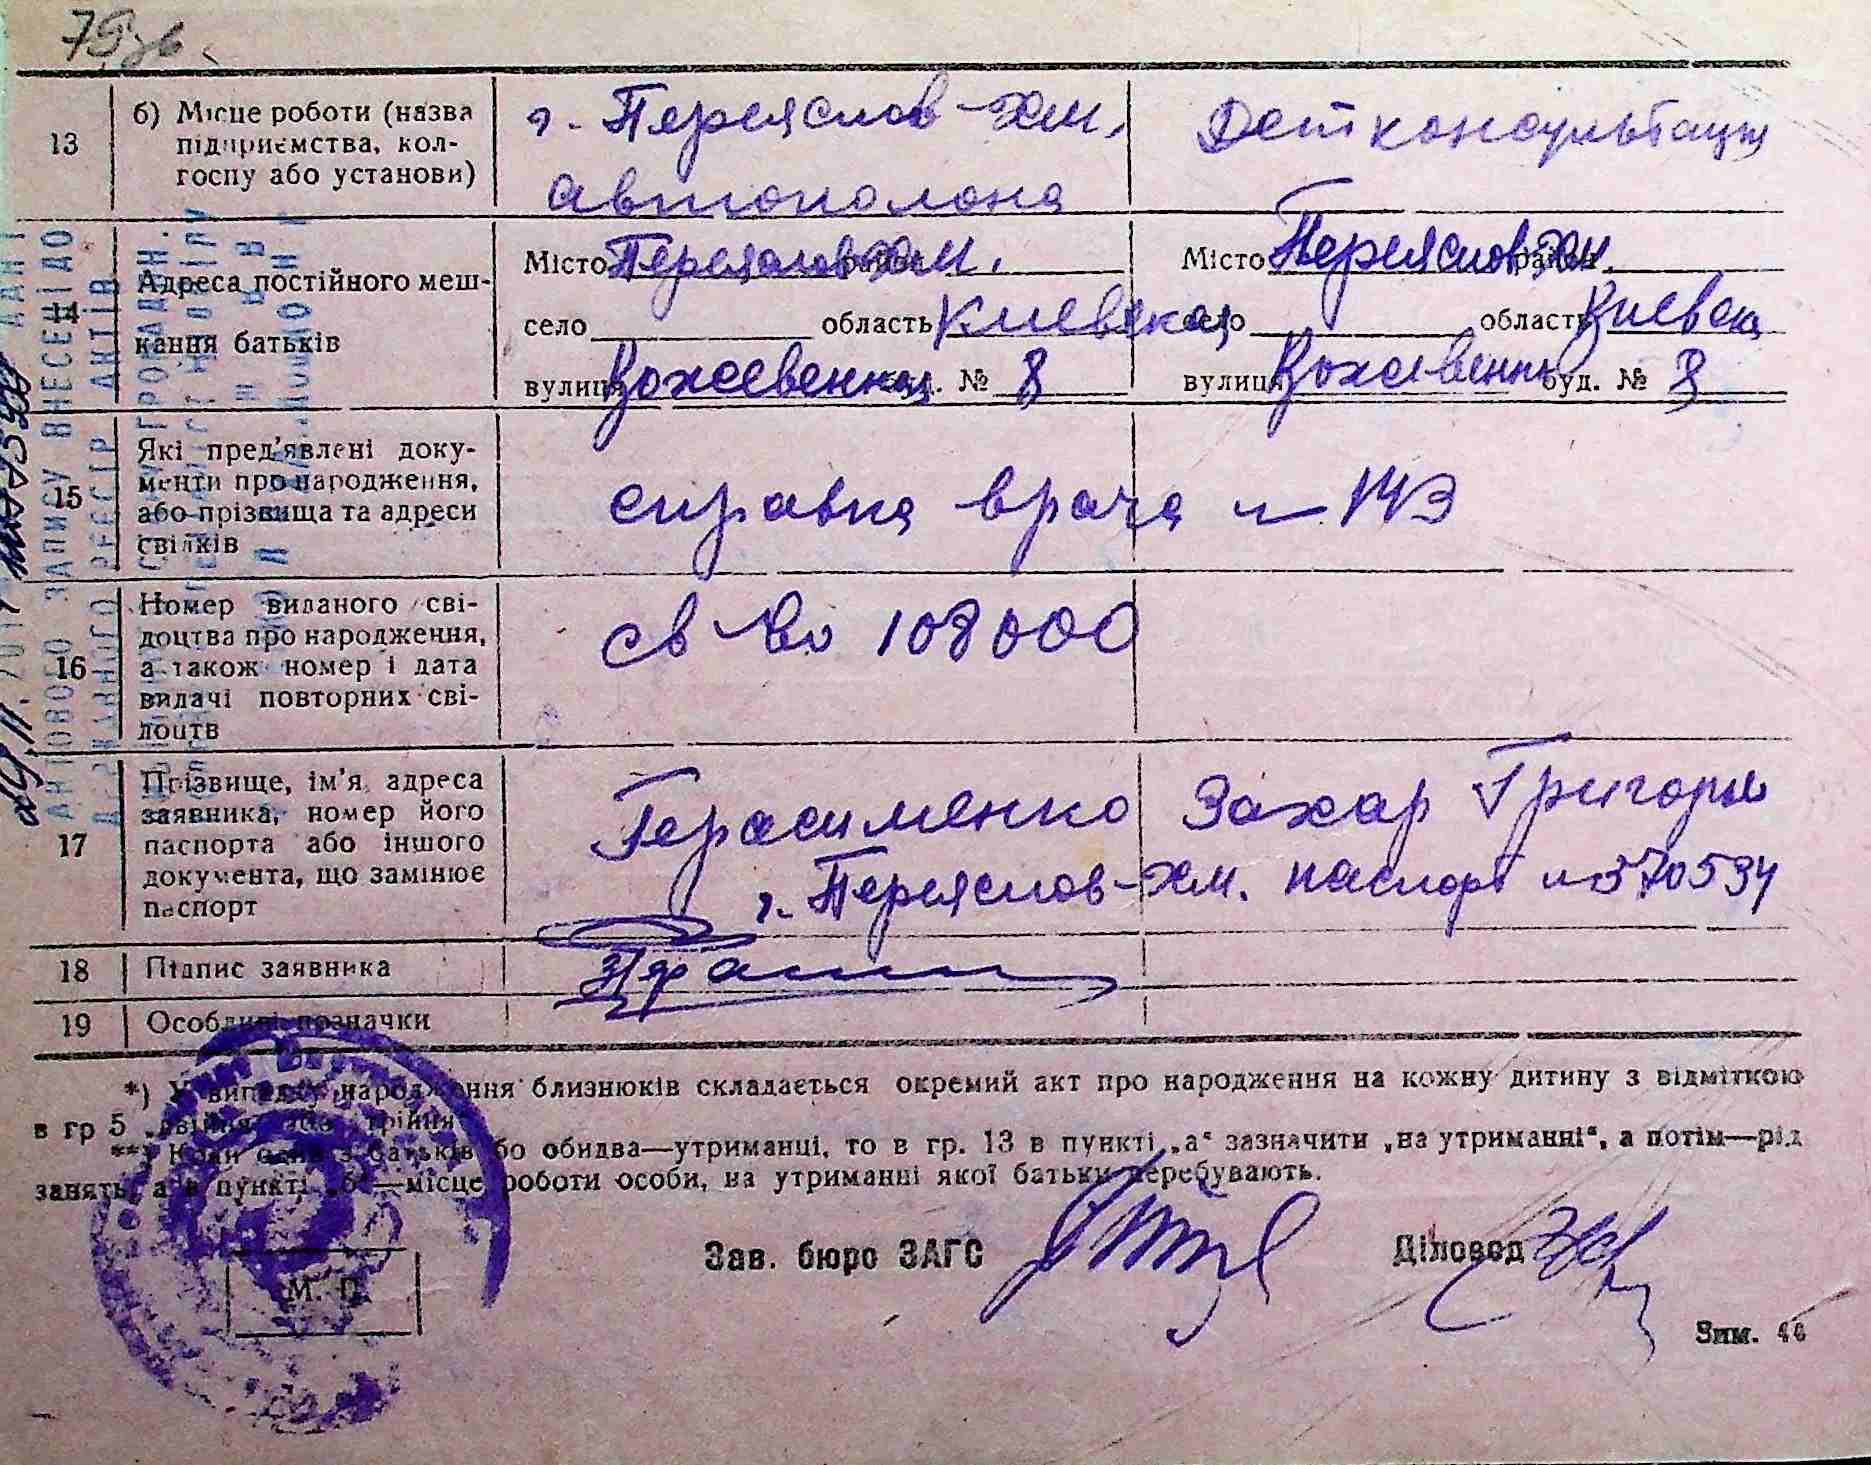 79 зв
13 б) Місце роботи (назва підприємства, колгоспу або установи)
г. Переяслов-Хм. автоколона
Детконсультация
14 Адреса постійного мешкання батьків
Місто Переяслов Хм. район
село область Киевская
вулиця Кожевенная буд. № 8
Місто Переяслов Хм. район
село область Киевска
вулиця Кожевенн буд. № 8
15 Які пред'явлені документи про народження, або прізвища та адреси свідків
справка врача № 143
16 Номер виданого свідоцтва про народження, а також номер і дата видачі повторних свідоцтв
св-во 108000
17 Прізвище, ім'я, адреса заявника, номер його паспорта або іншого документа, що замінює паспорт
Герасименко Захар Григорьев
г. Переяслов-Хм. паспорт № 570534
18 Підпис заявника
19 Особливі позначки
*) У випадку народження близнюків складається окремий акт про народження на кожну дитину з відміткою
в гр 5 „двійня" або „трійня"
**) Коли один з батьків або обидва—утриманці, то в гр. 13 в пункті „а" зазначити „на утриманні", а потім—рід
занять, а в пункті „б"—місце роботи особи, на утриманні якої батьки перебувають.
Зав. бюро ЗАГС
Діловод
М. П.
Зим. 46